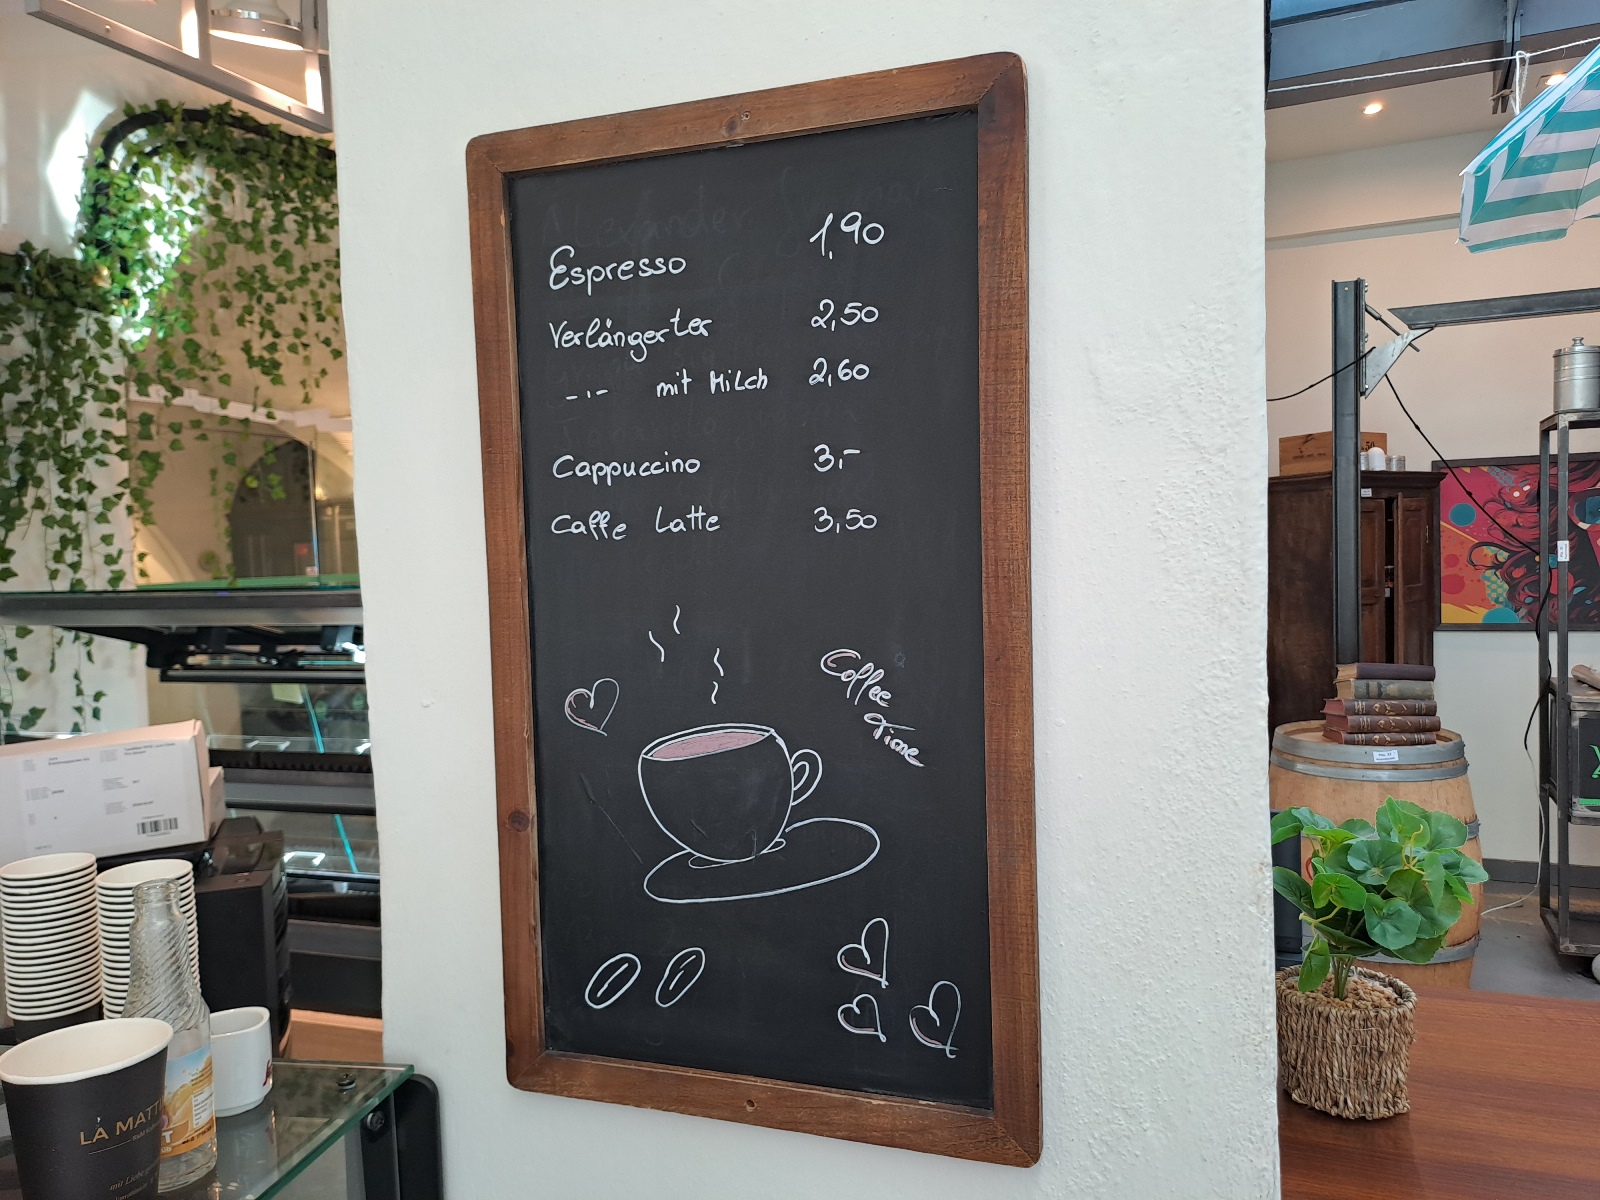 Espresso 1,90
Verlängerter 2,50
-.- mit Milch 2,60
Cappuccino 3,-
Caffe Latte 3,50
Coffee
Time
LA MATT
mit Liebe